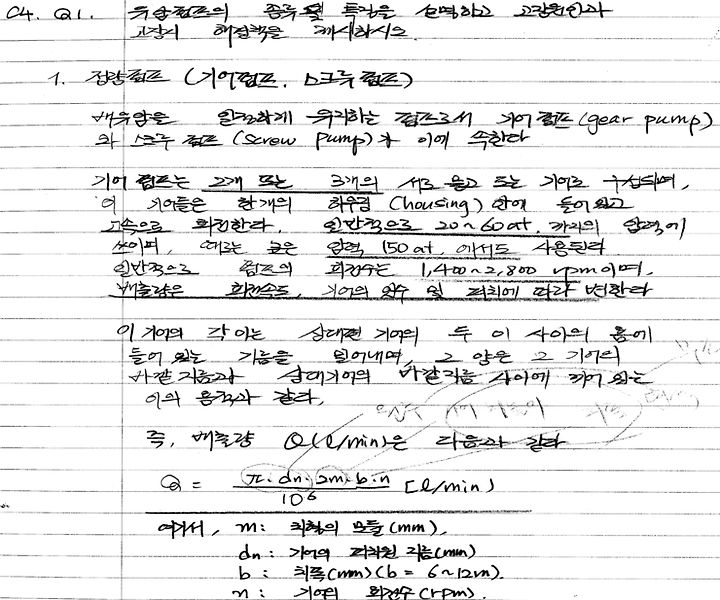 C4. Q1. 유압펌프의 종류 및 특징을 설명하고 고장원인과
고장시 해결책을 제시하시오.
1. 정량펌프 (기어펌프, 스크류 펌프)
배유량을 일정하게 유지하는 펌프로서 기어 펌프(gear pump)
와 스크류 펌프 (screw pump)가 이에 속한다
기어 펌프는 2개 또는 3개의 서로 물고 도는 기어로 구성되며,
이 기어들은 한개의 하우징 (housing) 안에 들어 있고
고속으로 회전한다. 일반적으로 20~60at. 까지의 압력에
쓰이며, 때로는 높은 압력 150at. 에서도 사용된다
일반적으로 펌프의 회전수는 1,400~2,800 rpm이며,
배출량은 회전속도, 기어의 잇수 및 피치에 따라 변한다
이 기어의 각 이는 상대편 기어의 두 이 사이의 홈에
들어 있는 기름을 밀어내며, 그 양은 그 기어의
바깥지름과 상대기어의 바깥지름 사이에 끼어 있는
이의 용적과 같다.
즉, 배출량 Q(ℓ/min)은 다음과 같다
Q = π·dn·2m·b·n / 10⁶ [ℓ/min)
여기서, m: 치형의 모듈(mm),
dn: 기어의 피치원 지름(mm)
b: 치폭(mm)(b = 6~12m).
n: 기어의 회전수(rpm).